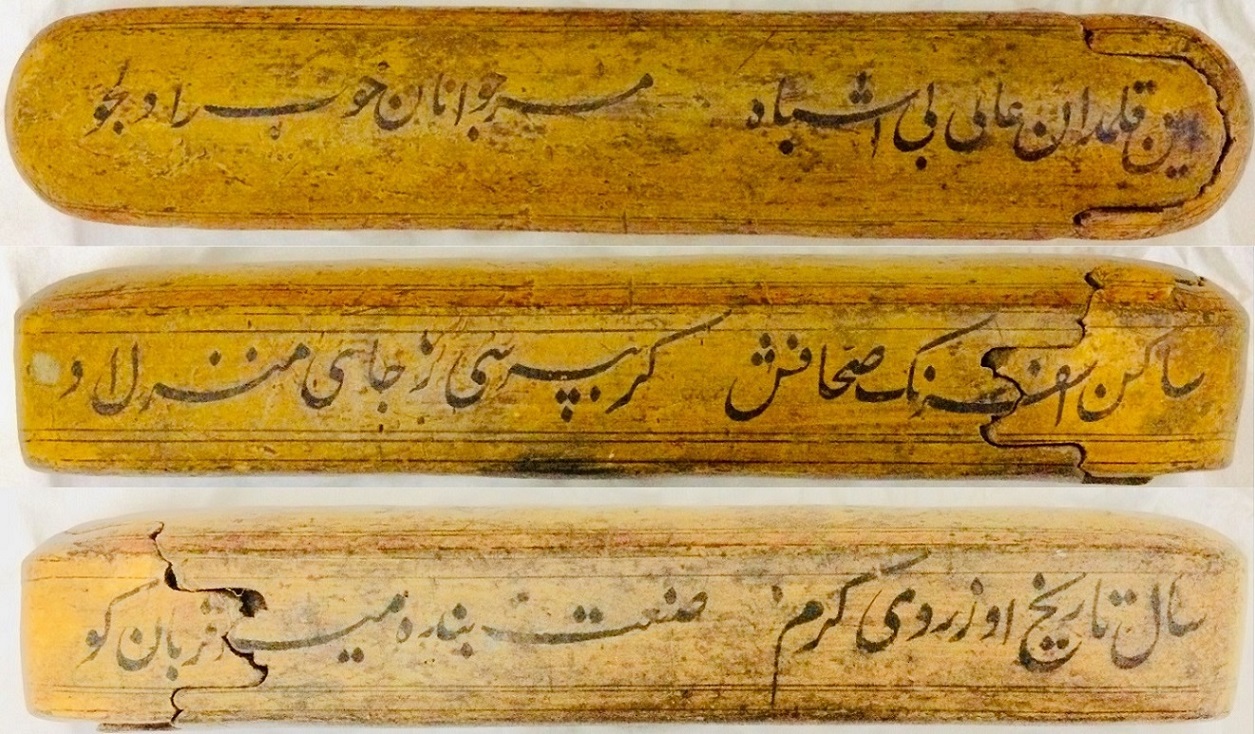 این قلمدان عالی بی اشتباه مر جوانان خوب را دلجو
ساکن صحافش گر بپرسی ز جای منزل او
سال تاریخ او ز روی کرم صنعت بنده میر قربان گو